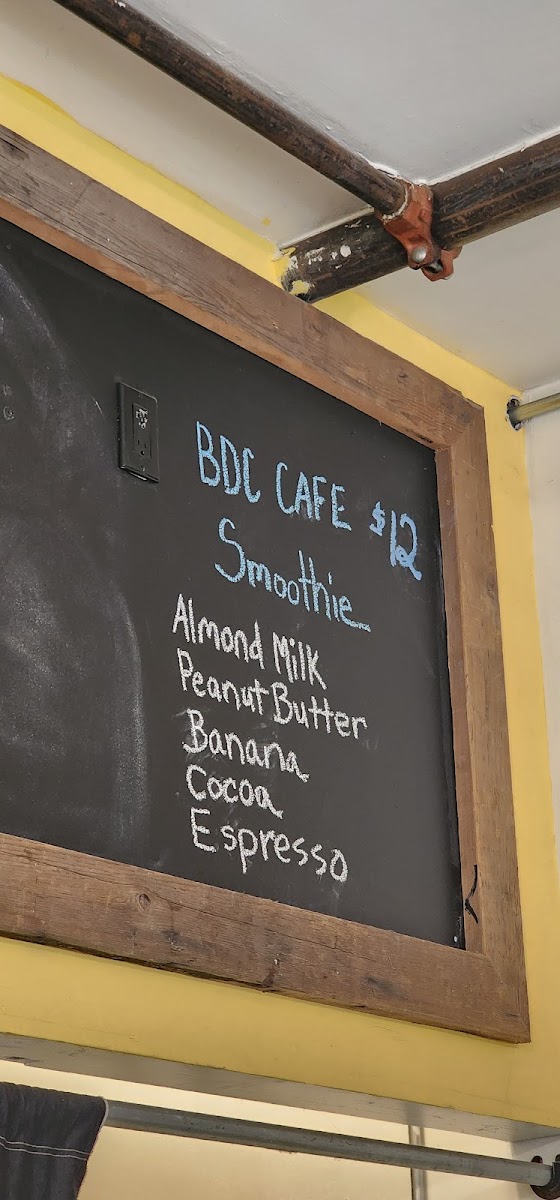 BDC CAFE $12
Smoothie
Almond Milk
Peanut Butter
Banana
Cocoa
Espresso